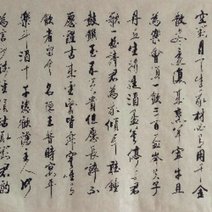 空對月天生我材必有用千金
散盡還復來烹羊宰牛且
為樂會須一飲三百杯岑夫子
丹丘生將進酒君莫停與君
歌一曲請君為我傾耳聽鐘
鼓饌玉不足貴但願長醉不
願醒古來聖賢皆寂寞惟有
飲者留其名陳王昔時宴平
樂斗酒十千恣歡謔主人何
為言少錢徑須沽取對君酌